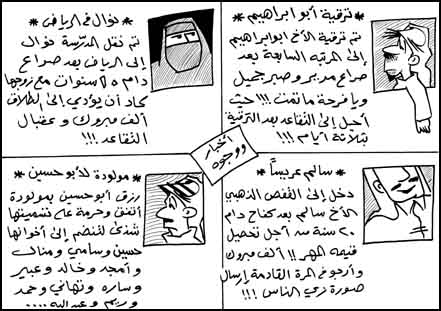 * ترقية أبو ابراهيم *
تم ترقية الأخ ابو ابراهيم
إلى المرتبة السابعة بعد
صراع مدير وصبر جميل
ويا فرحة ما تمت !!! حيث
أحيل إلى التقاعد بعد الترقية
بثلاثة أيام !!!
* نوال في الرياض *
تم نقل المدرّسة نوال
إلى الرياض بعد صراع
دام ٥ سنوات مع زوجها
كاد أن يؤدي إلى الطلاق
ألف مبروك وعقبال
التقاعد !!!
أخبار
ووجوه
* سالم عريساً *
دخل إلى القفص الذهبي
الأخ سالم بعد كفاح دام
٢٠ سنة من أجل تحصيل
قيمة المهر !! ألف مبروك
وأرجو في المرة القادمة إرسال
صورة تري الناس !!!
* مولودة لأبو حسين *
رزق أبو حسين بمولودة
اتفق وحرمه على تسميتها
شذى لتنضم إلى أخوانها
حسين وسامي ومناف
وأمجد وخالد وعبير
وساره وتهاني وحمد
وريم وعبدالله ....